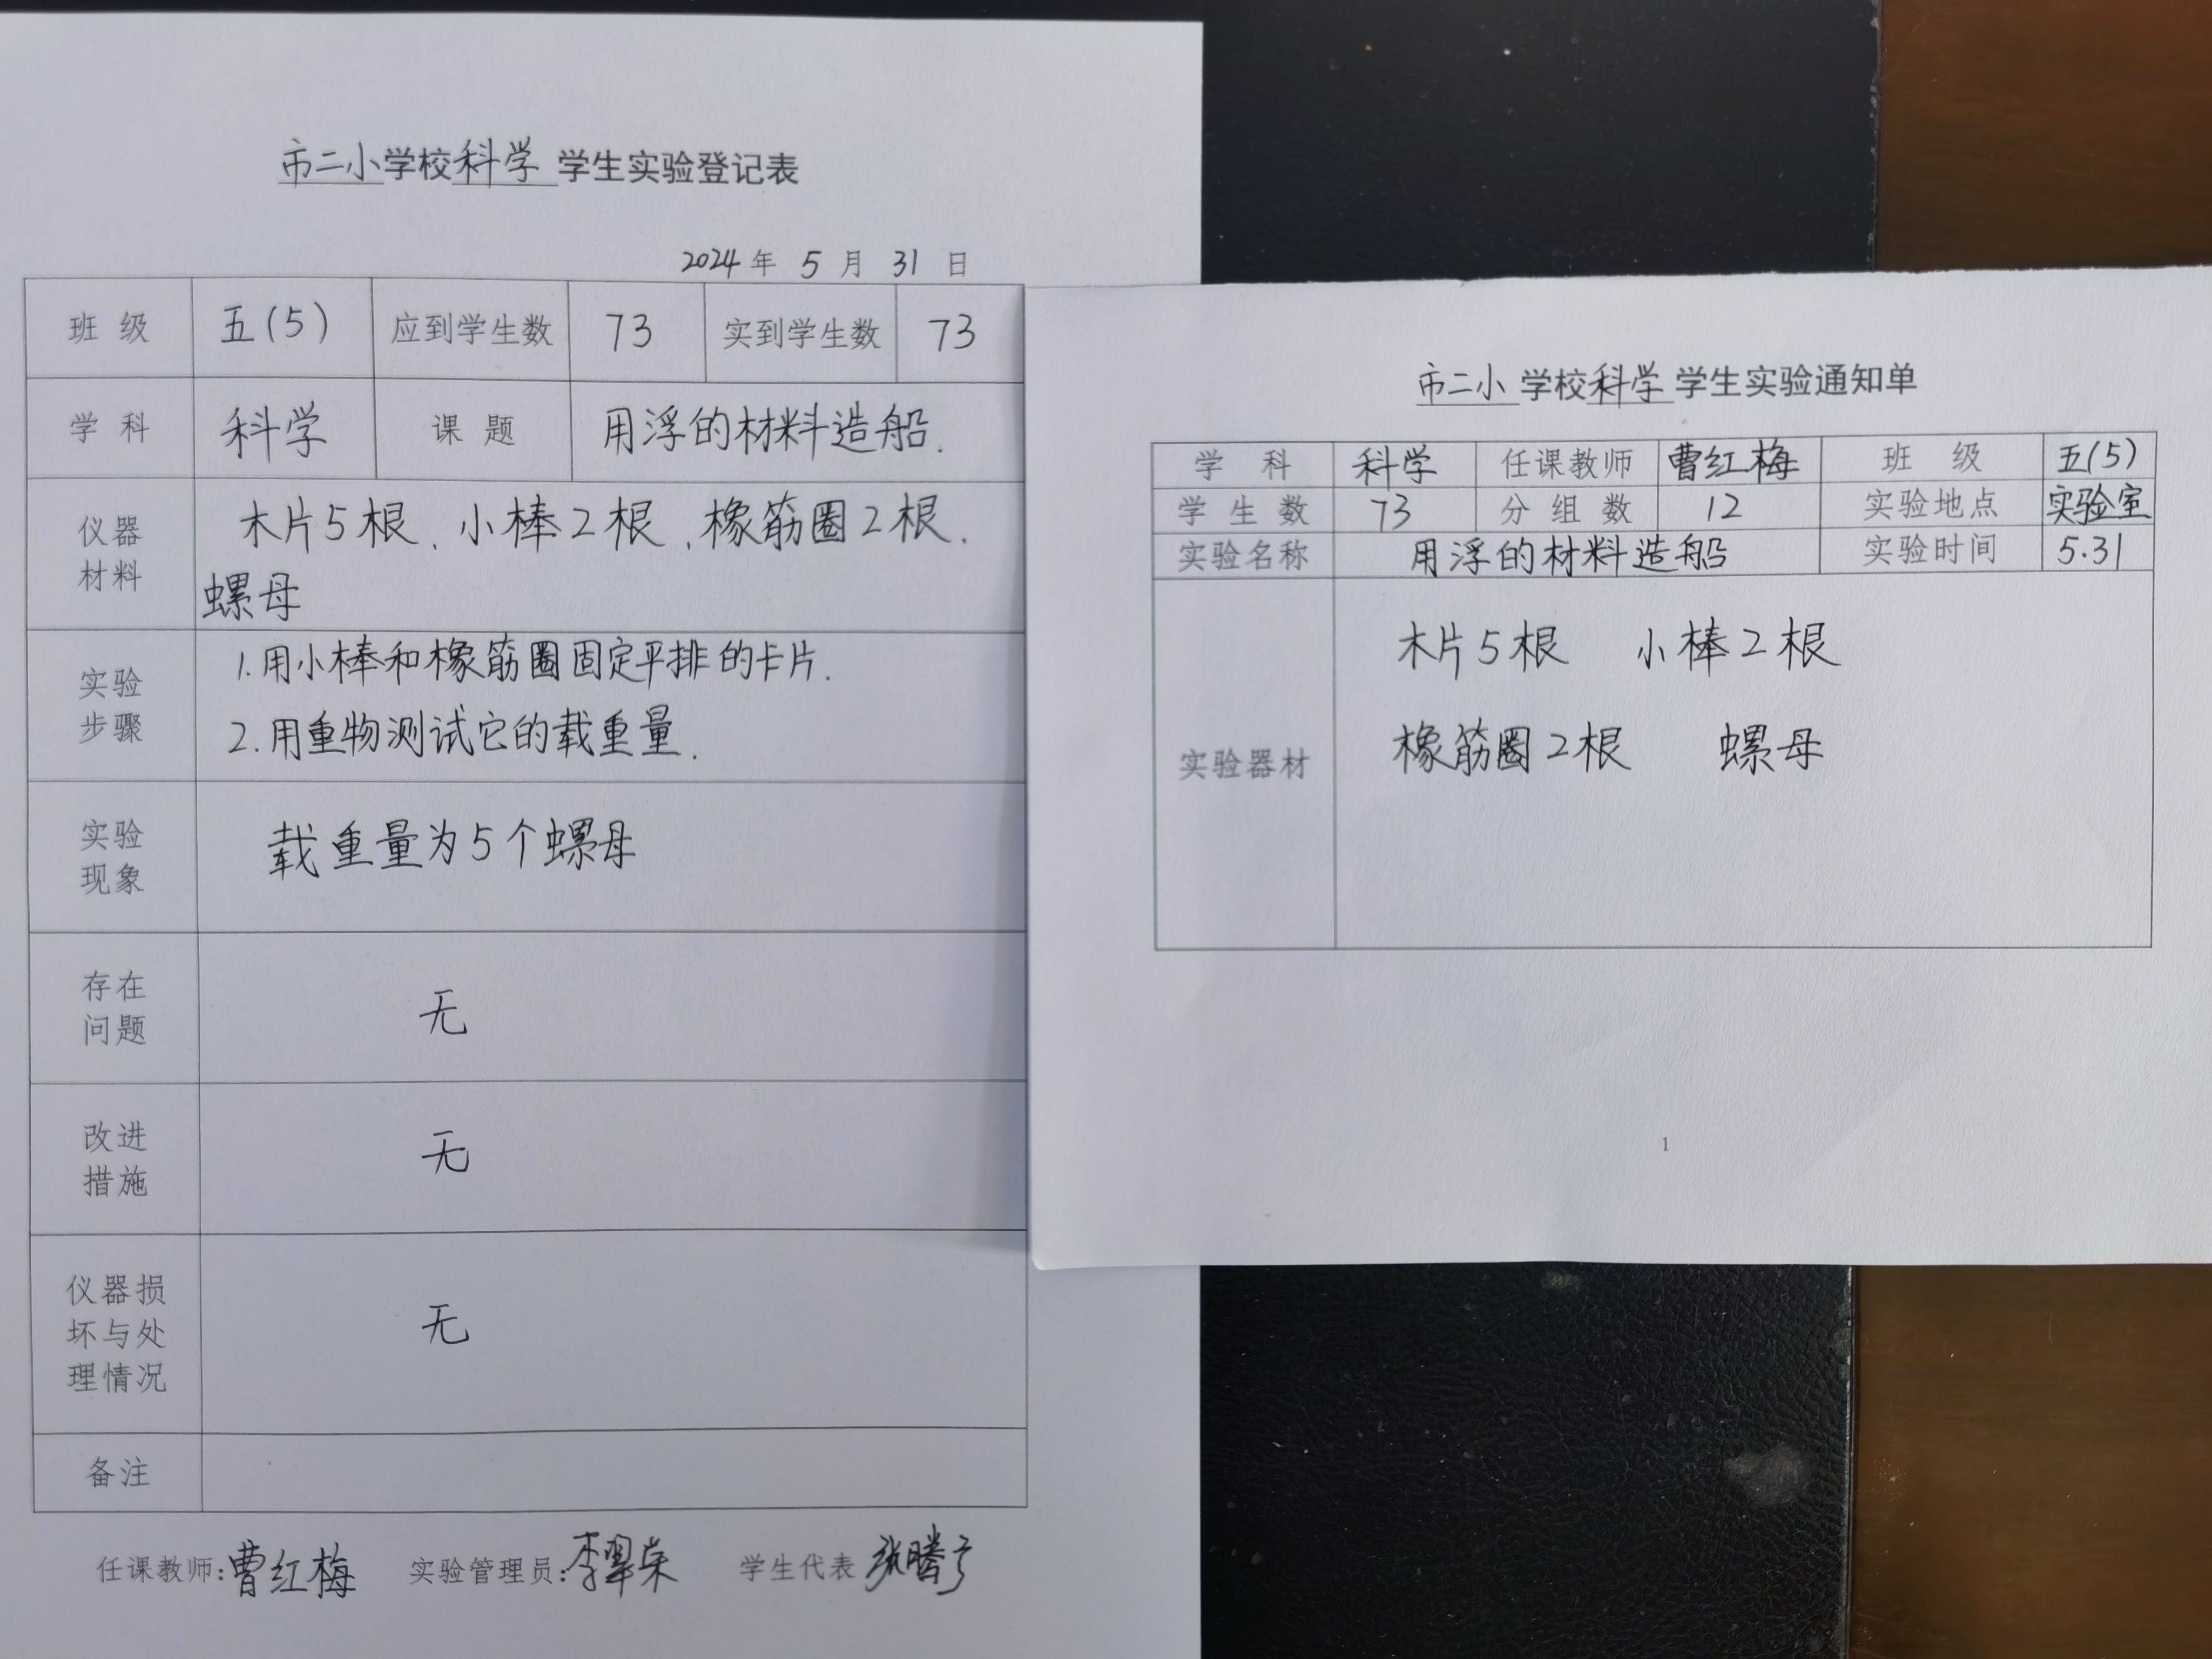 市二小学校科学 学生实验登记表
2024 年 5 月 31 日
班 级 五(5) 应到学生数 73 实到学生数 73
学 科 科学 课 题 用浮的材料造船.
仪器材料 木片5根、小棒2根、橡筋圈2根、
螺母
实验步骤 1.用小棒和橡筋圈固定平排的卡片.
2.用重物测试它的载重量.
实验现象 载重量为5个螺母
存在问题 无
改进措施 无
仪器损坏与处理情况 无
备注
任课教师:曹红梅 实验管理员: 学生代表
市二小 学校科学 学生实验通知单
学 科 科学 任课教师 曹红梅 班 级 五(5)
学 生 数 73 分 组 数 12 实验地点 实验室
实验名称 用浮的材料造船 实验时间 5.31
实验器材 木片5根 小棒2根
橡筋圈2根 螺母
1